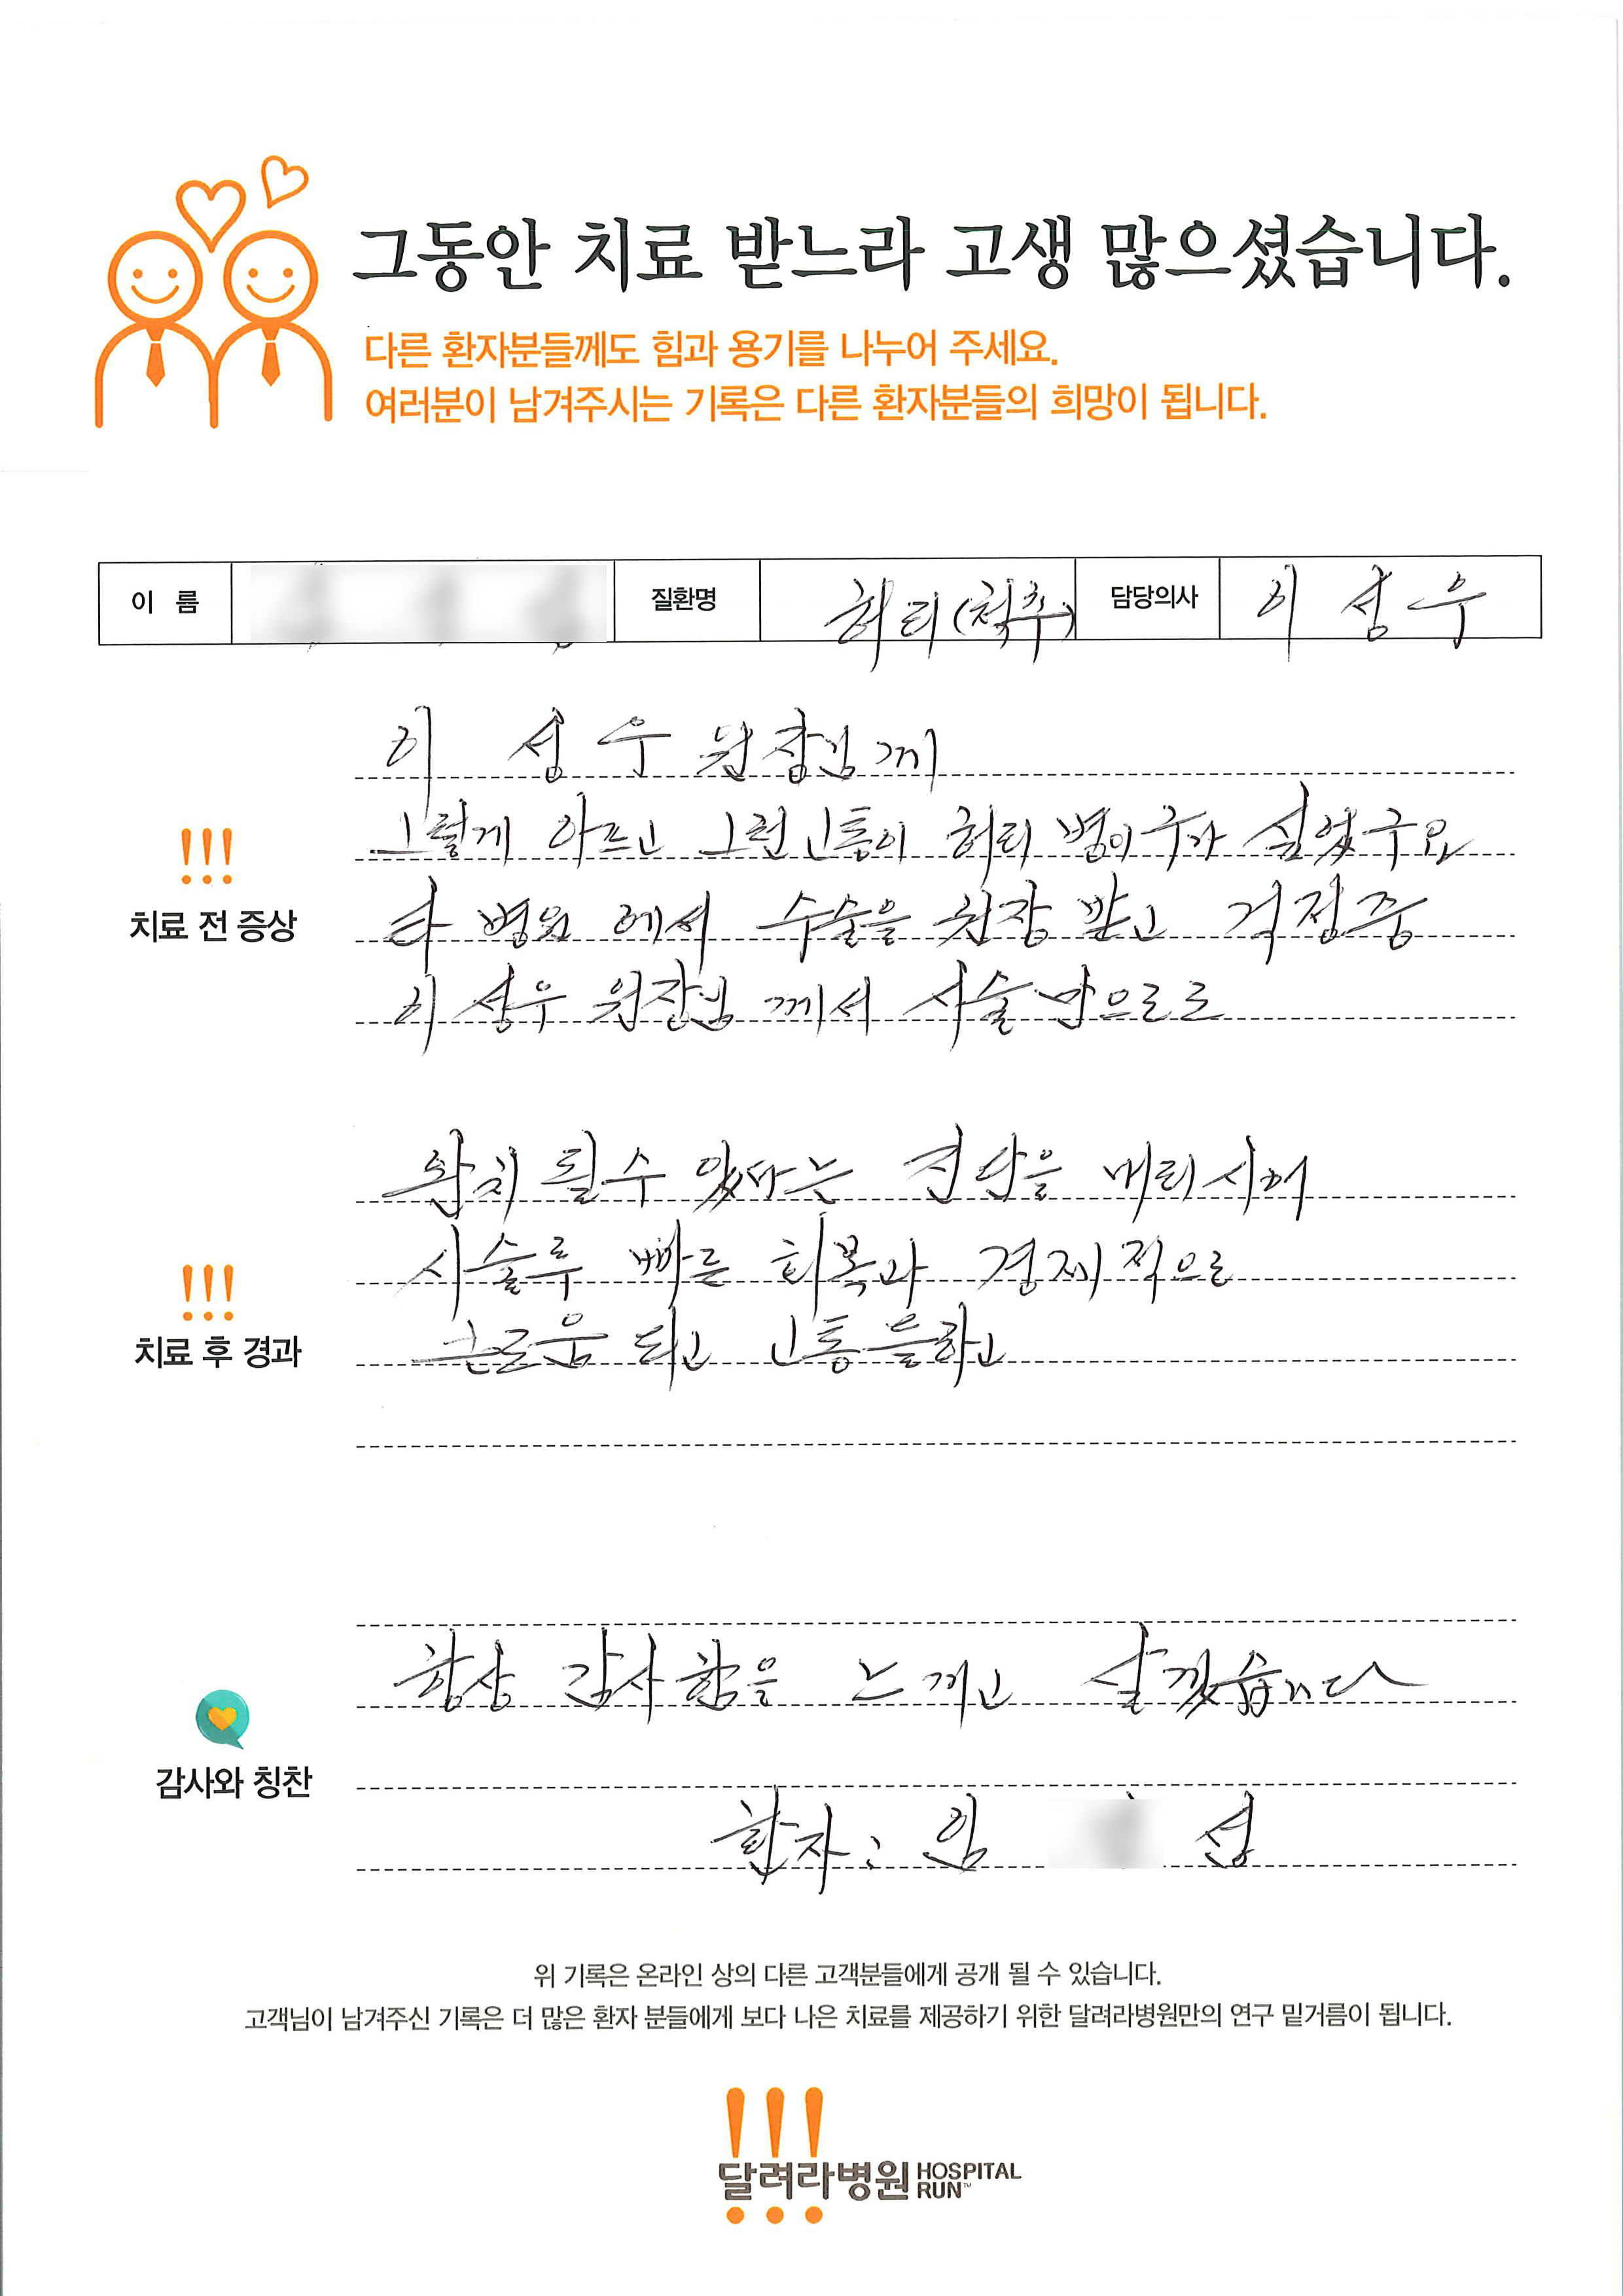 그동안 치료 받느라 고생 많으셨습니다.
다른 환자분들께도 힘과 용기를 나누어 주세요.
여러분이 남겨주시는 기록은 다른 환자분들의 희망이 됩니다.
이 름 질환명 허리(척추) 담당의사 이성우
이 성 우 원장님 께
그렇게 아프고 그런 고통이 허리 병이구나 싶었구요
타 병원 에서 수술을 권장 받고 걱정중
이성우 원장님 께서 시술 만으로도
치료 전 증상
완치 될수 있다는 진단을 내리시어
시술후 빠른 회복과 경제적으로
도움 되고 고통 덜하고
치료 후 경과
항상 감사함을 느끼고 살겠습니다
감사와 칭찬
환자: 임 섭
위 기록은 온라인 상의 다른 고객분들에게 공개 될 수 있습니다.
고객님이 남겨주신 기록은 더 많은 환자 분들에게 보다 나은 치료를 제공하기 위한 달려라병원만의 연구 밑거름이 됩니다.
달려라병원 HOSPITAL RUN™